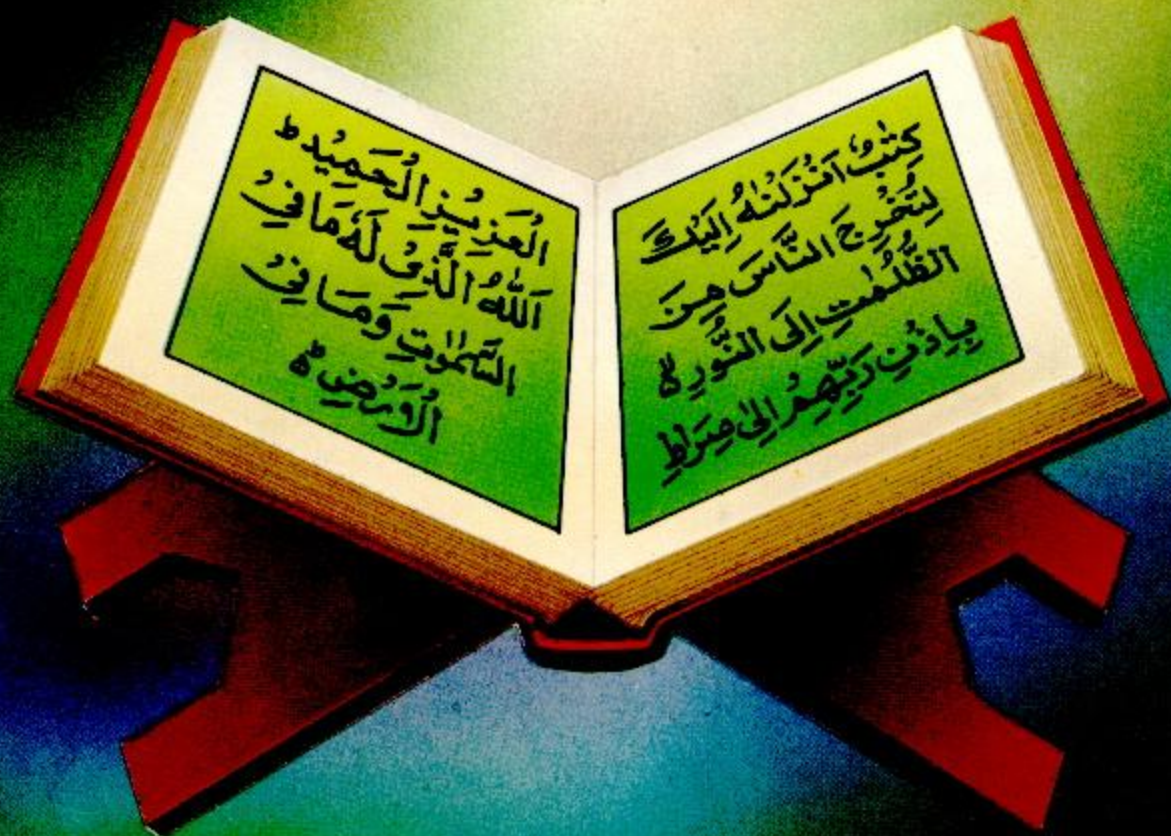 كِتٰبٌ اَنْزَلْنٰهُ اِلَيْكَ
لِتُخْرِجَ النَّاسَ مِنَ
الظُّلُمٰتِ اِلَى النُّوْرِ ۵
بِاِذْنِ رَبِّهِمْ اِلٰى صِرَاطِ
الْعَزِيْزِ الْحَمِيْدِ ط
اَللّٰهُ الَّذِىْ لَهٗ مَا فِىْ
السَّمٰوٰتِ وَمَا فِىْ
الْاَرْضِ ۵